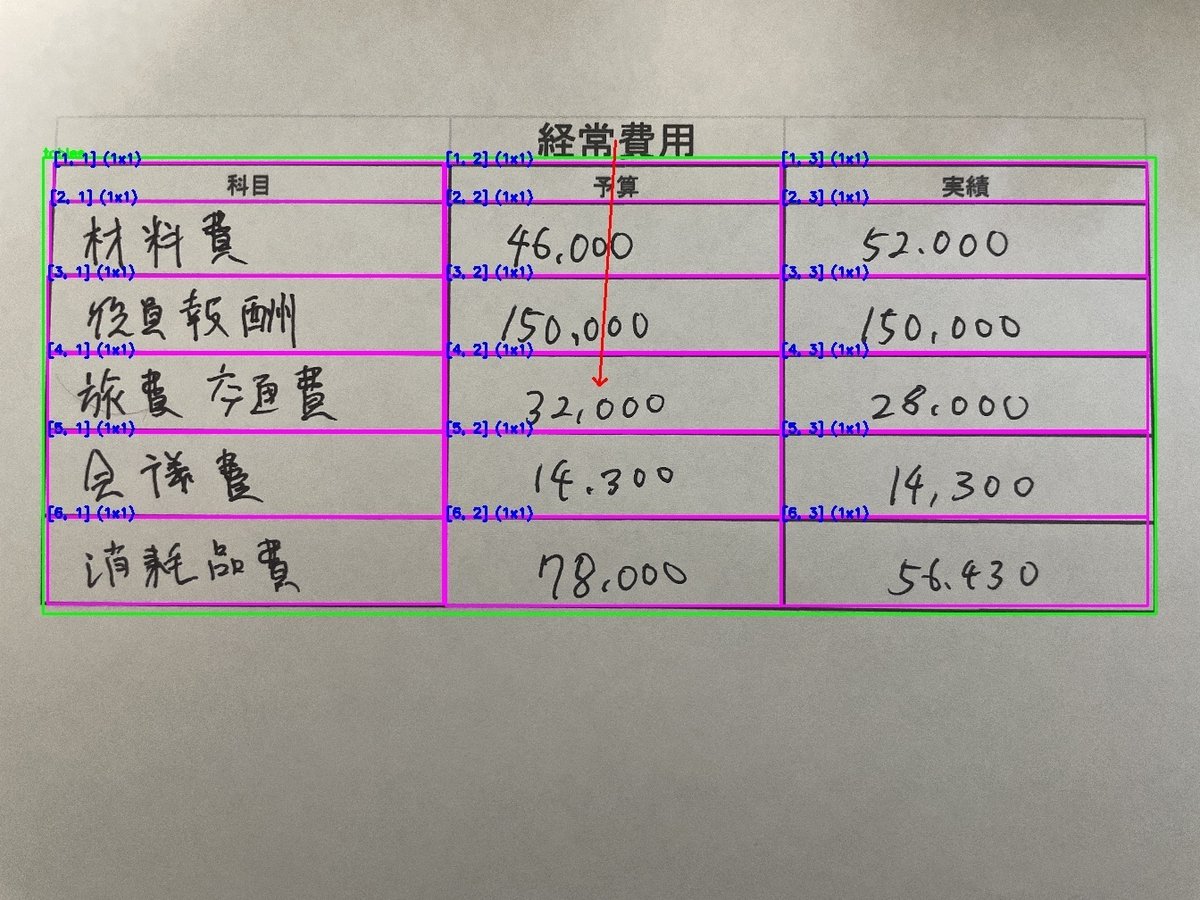 経常費用
tables
[1, 1] (1x1) [1, 2] (1x1) [1, 3] (1x1)
科目 予算 実績
[2, 1] (1x1) [2, 2] (1x1) [2, 3] (1x1)
材料費 46,000 52.000
[3, 1] (1x1) [3, 2] (1x1) [3, 3] (1x1)
役員報酬 150,000 150,000
[4, 1] (1x1) [4, 2] (1x1) [4, 3] (1x1)
旅費 交通費 32,000 28.000
[5, 1] (1x1) [5, 2] (1x1) [5, 3] (1x1)
会議費 14.300 14,300
[6, 1] (1x1) [6, 2] (1x1) [6, 3] (1x1)
消耗品費 78.000 56.430